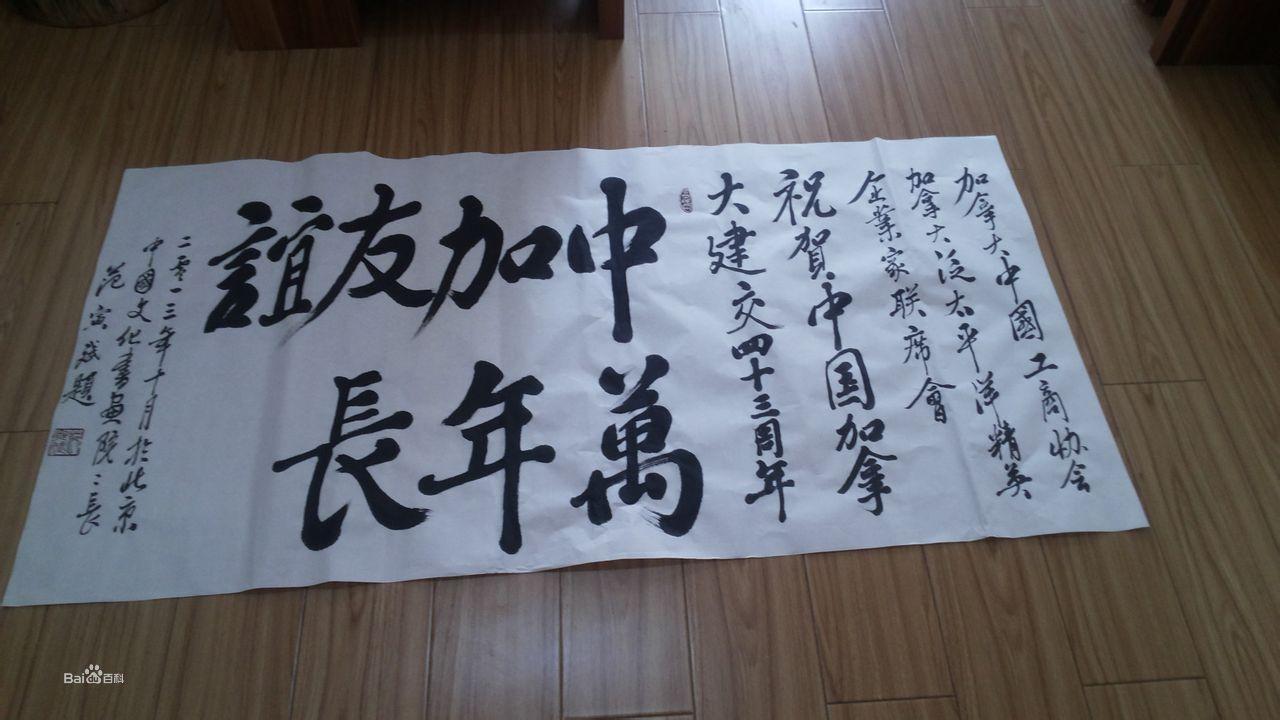 加拿大中國工商协会
加拿大泛太平洋精英
企業家联席會
祝賀中国加拿
大建交四十三周年
中加友誼
萬年長
二零一三年十月於北京
中國文化書画院〻長
范寅
題
Bai百科